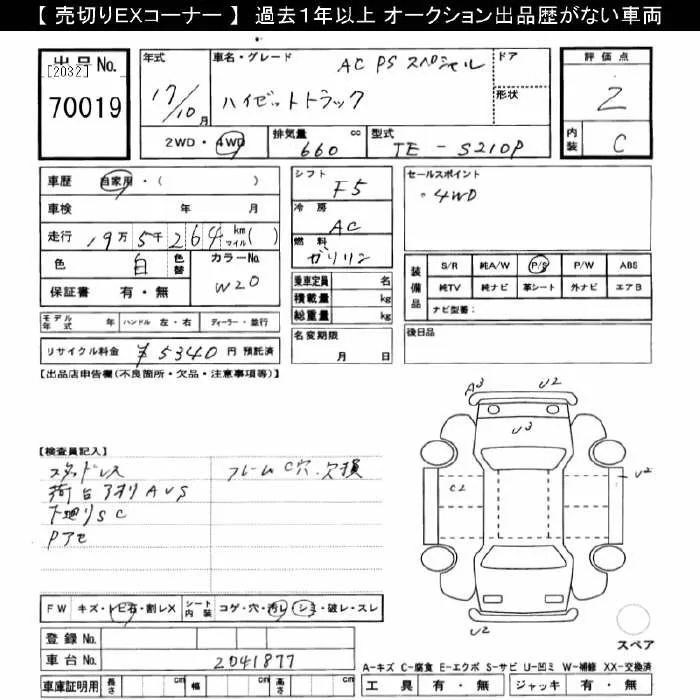 【 売切りEXコーナー 】 過去1年以上 オークション出品歴がない車両
出品No.
[2032]
70019
年式
17/10月
車名・グレード
AC PS スペシャル
ハイゼットトラック
ドア
形状
評価点
2
内装
C
2WD・4WD
排気量
660
cc
型式
TE-S210P
車歴
自家用・( )
車検
年 月
走行
19万5千264
km
マイル
( )
色
白
色替
カラーNo.
W20
保証書
有・無
シフト
F5
冷房
AC
燃料
ガソリン
乗車定員
名
積載量
kg
総重量
kg
セールスポイント
・4WD
装備品
S/R
純A/W
P/S
P/W
ABS
純TV
純ナビ
革シート
外ナビ
エアB
ナビ型番:
モデル年式
年
ハンドル
左・右
ディーラー・並行
名変期限
月 日
後日品
リサイクル料金
¥5340
円 預託済
【出品店申告欄(不良箇所・欠品・注意事項等)】
【検査員記入】
スタッドレス
フレームC穴・欠損
荷台アオリAUS
下廻りSC
Pアセ
A3
U2
U3
C2
U2
U2
FW
キズ・トビ石・割レX
シート内装
コゲ・穴・汚レ・シミ・破レ・スレ
登録No.
車台No.
2041877
車庫証明用
長さ
cm
幅
cm
高さ
cm
スペア
A-キズ C-腐食 E-エクボ S-サビ U-凹ミ W-補修 XX-交換済
工具
有・無
ジャッキ
有・無